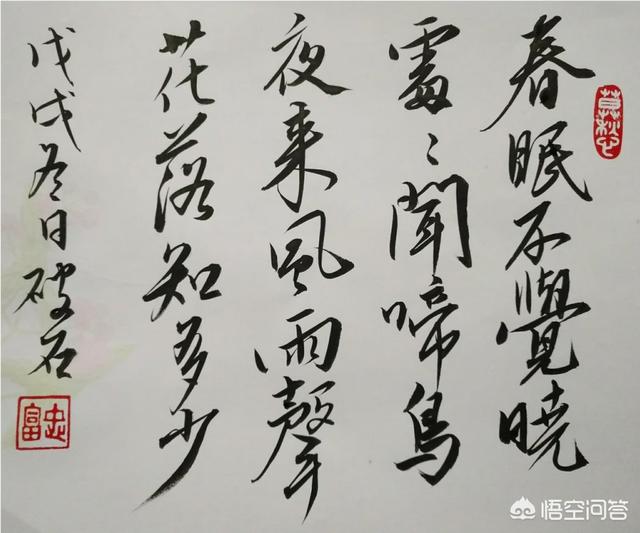 春眠不覺曉
處〻聞啼鳥
夜来風雨聲
花落知多少
戊戌冬日破石
忠富
悟空问答